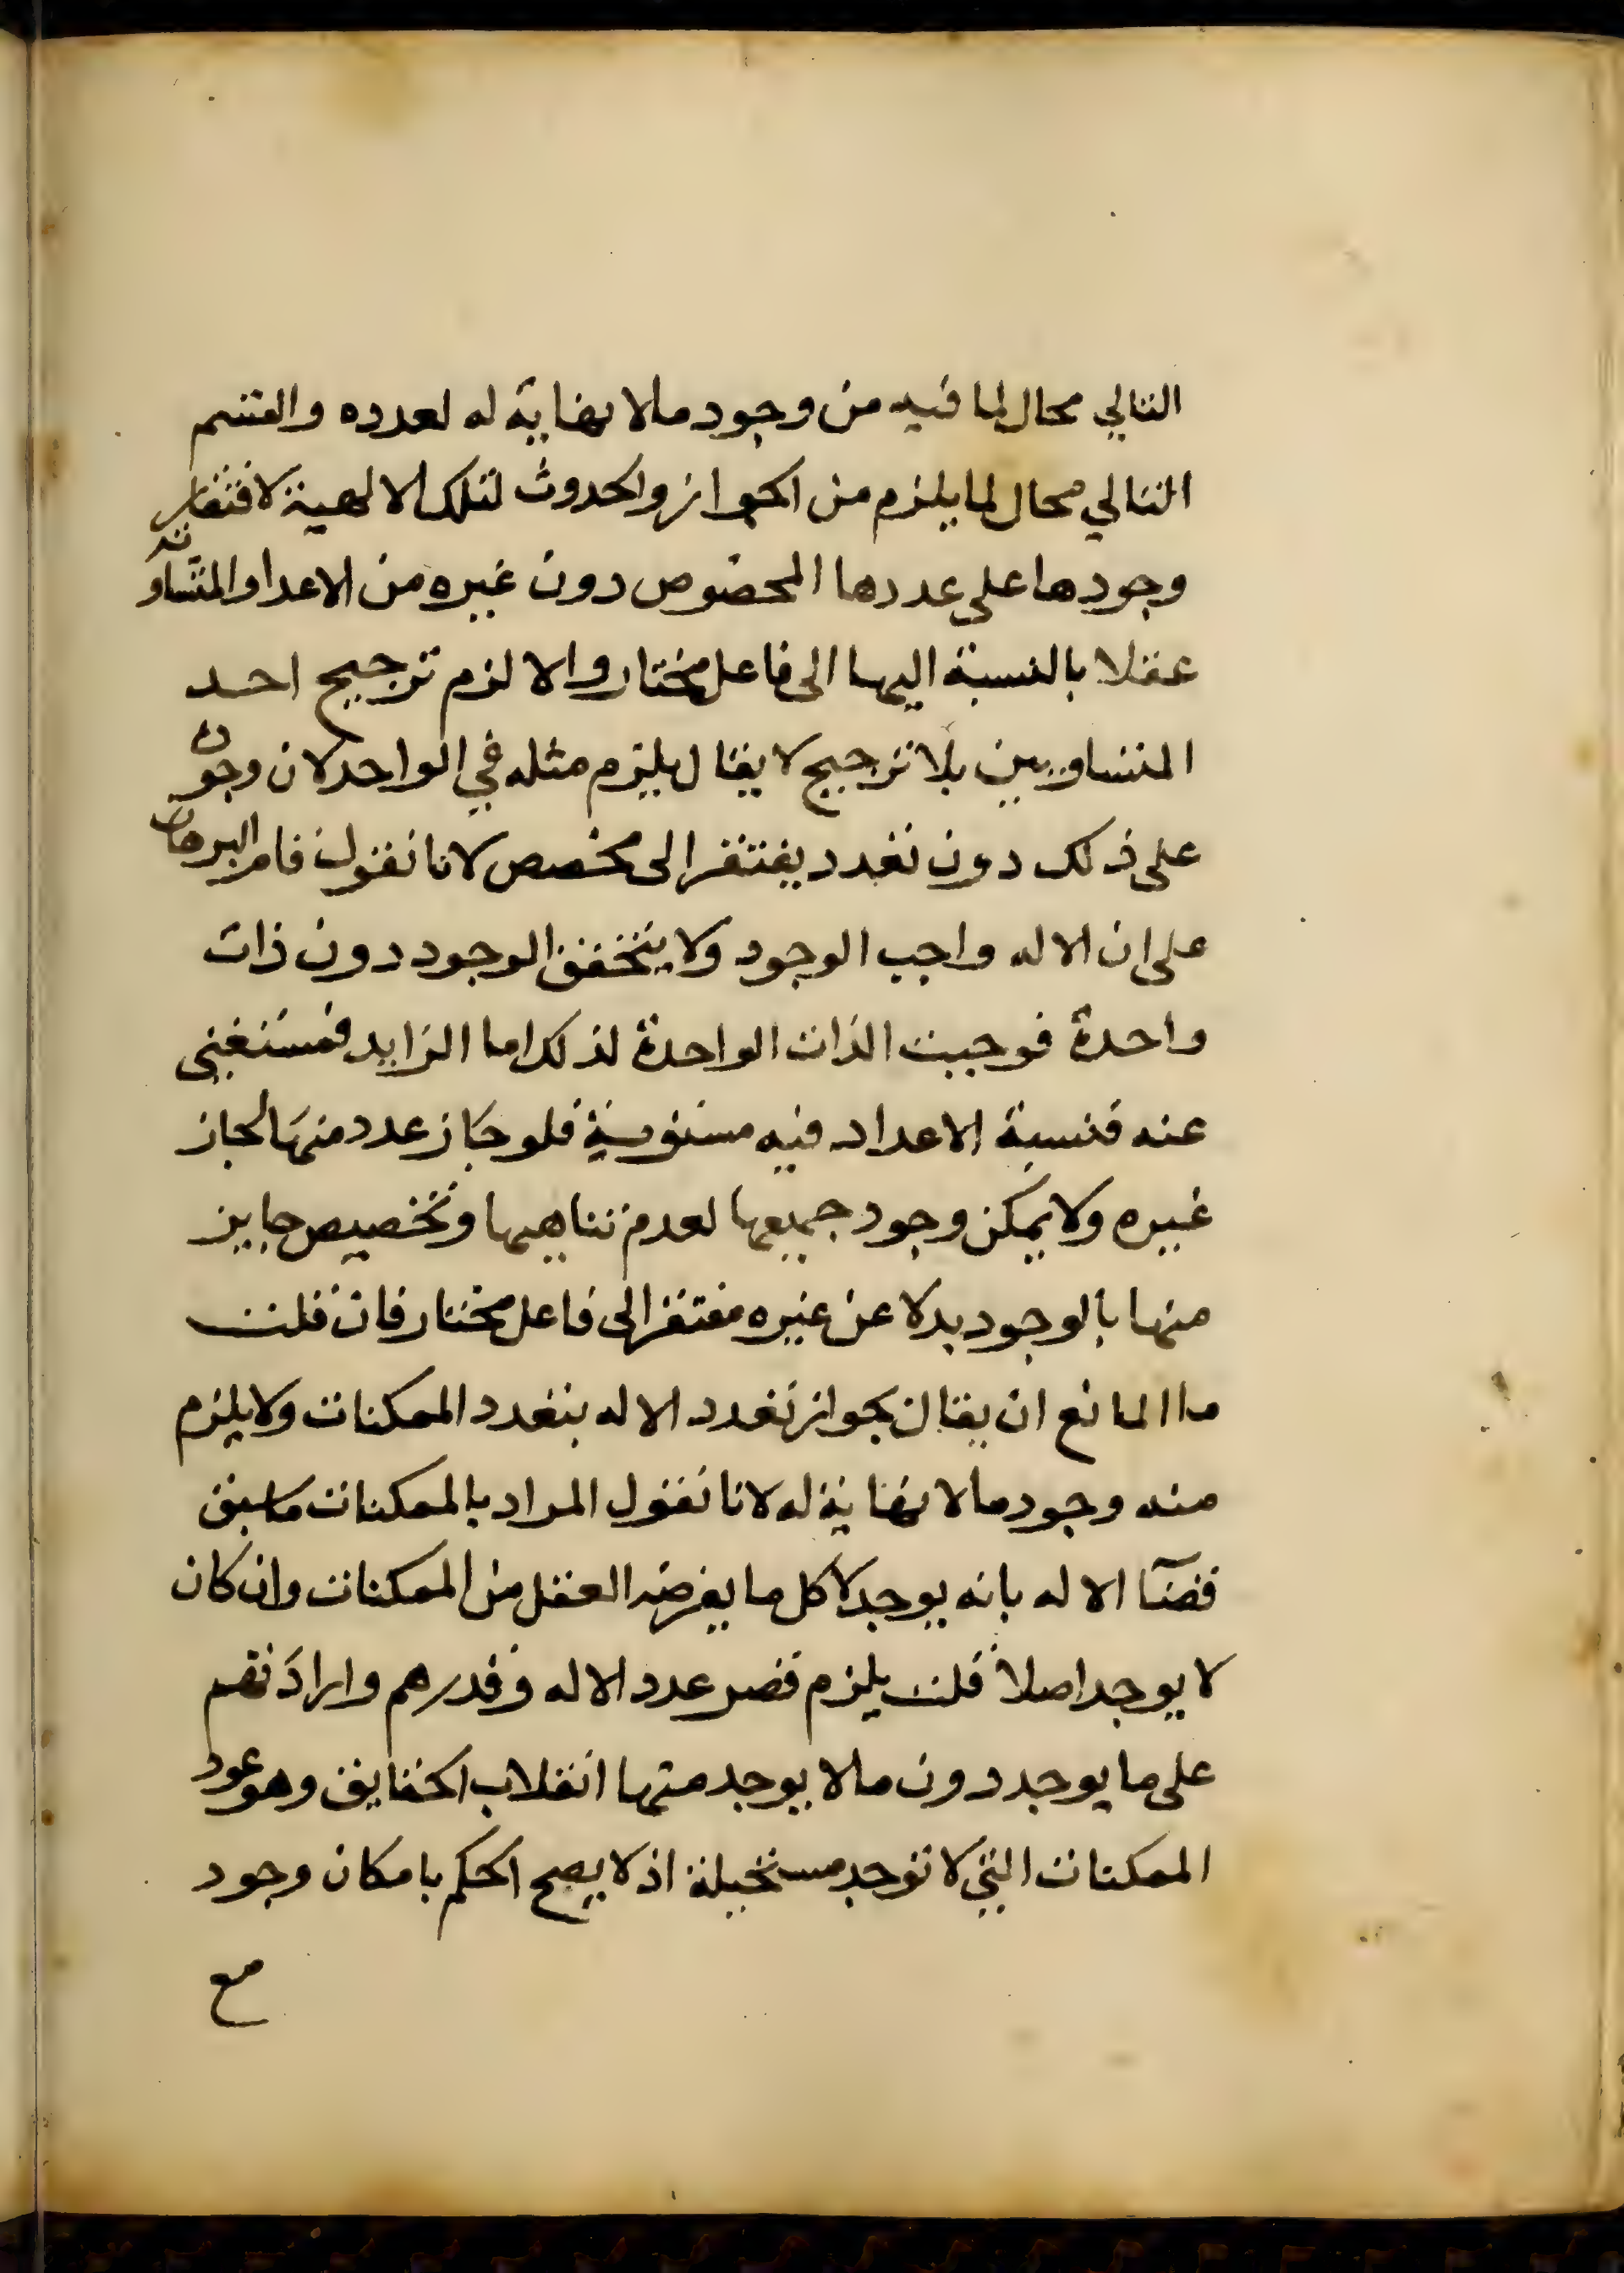 التالي محال لما فيه من وجود مالا نهاية له لعدده والقسم
التالي محال لما يلزم من الجواز والحدوث لتلك الالهية لافتقار
وجودها على عددها المخصوص دون غيره من الاعداد المتساوية
عقلا بالنسبة اليها الى فاعل مختار والا لزم ترجيح احد
المتساويين بلا ترجيح لا يقال يلزم مثله في الواحد لان وجوده
على ذلك دون تعدد يفتقر الى مخصص لانا نقول قام البرهان
على ان الاله واجب الوجود ولا يتحقق الوجود دون ذات
واحدة فوجبت الذات الواحدة لذلك اما الزايد فمستغنى
عنه فنسبة الاعداد فيه مستوية فلو جاز عدد منها لجاز
غيره ولا يمكن وجود جميعها لعدم تناهيها وتخصيص جايز
منها بالوجود بدلا عن غيره مفتقر الى فاعل مختار فان قلت
ما المانع ان يقال بجواز تعدد الاله بتعدد الممكنات ولا يلزم
منه وجود مالا نهاية له لانا نقول المراد بالممكنات ما سبق
قضآ الاله بانه يوجد لا كل ما يفرضه العقل من الممكنات وان كان
لا يوجد اصلا قلت يلزم قصر عدد الاله وقدرهم وارادتهم
على ما يوجد دون مالا يوجد منها انقلاب الحقايق وهو عود
الممكنات التي لا توجد مستحيلة اذ لا يصح الحكم بامكان وجود
مع